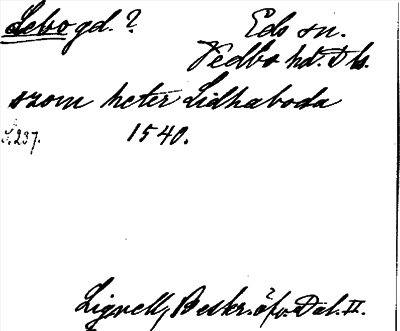 Lebo gd.? Eds sn.
Vedbo hd. Dls.
szom heter Lidhaboda
S. 237. 1540.
Lignell, Beskr. öfv. Dal. II.